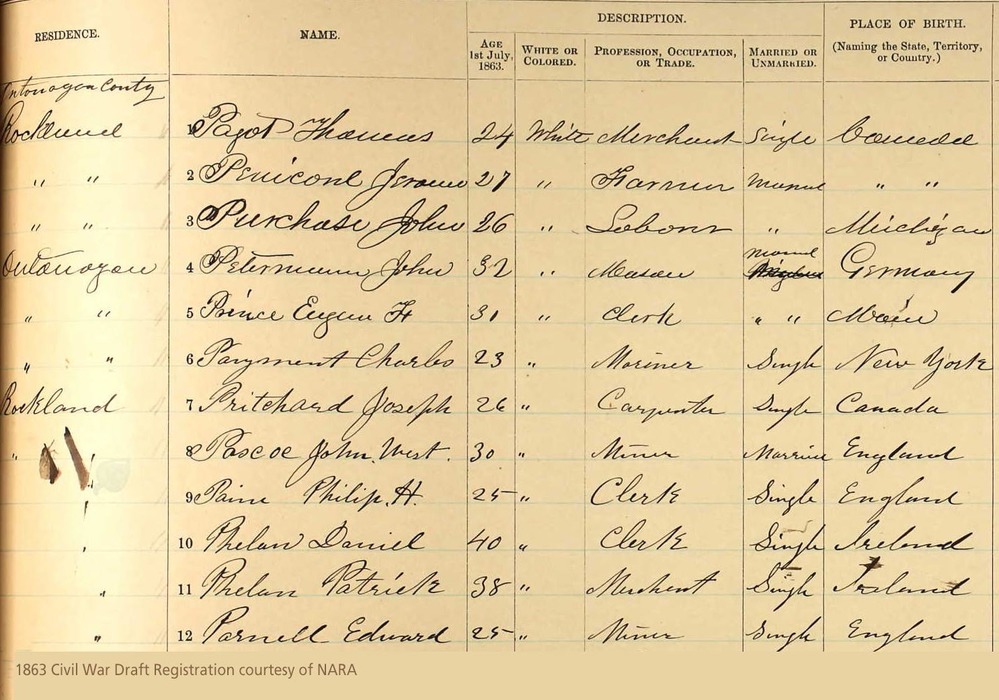 RESIDENCE. NAME. DESCRIPTION. PLACE OF BIRTH.
AGE 1st July, 1863. WHITE OR COLORED. PROFESSION, OCCUPATION, OR TRADE. MARRIED OR UNMARRIED. (Naming the State, Territory, or Country.)
Ontonagon County
Rockland 1 Pagot Thomas 24 White Merchant Single Canada
" " 2 Jerome 27 " Farmer Married " "
" " 3 Purchase John 26 " Laborer " Michigan
Ontonagon 4 Petermann John 32 " Mason Married Germany
" " 5 Prince Eugene H 31 " Clerk " " Maine
" " 6 Payment Charles 23 " Mariner Single New York
Rockland 7 Pritchard Joseph 26 " Carpenter Single Canada
" " 8 Pascoe John West. 30 " Miner Married England
" 9 Paine Philip. H. 25 " Clerk Single England
" 10 Phelan Daniel 40 " Clerk Single Ireland
" 11 Phelan Patrick 38 " Merchant Single Ireland
" 12 Parnell Edward 25 " Miner Single England
1863 Civil War Draft Registration courtesy of NARA